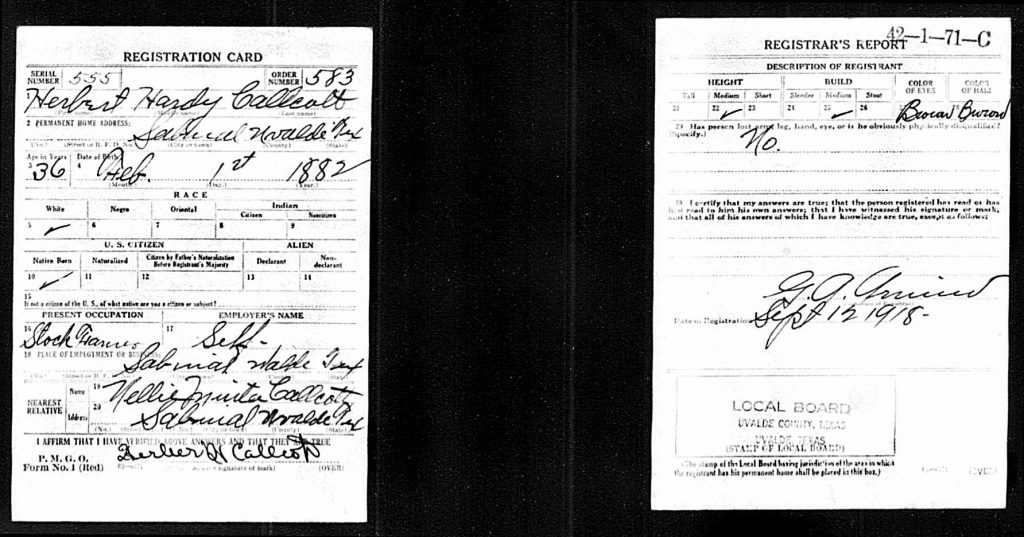 REGISTRATION CARD
SERIAL NUMBER 555 ORDER NUMBER 583
Herbert Hardy Callcott
(First name) (Middle name) (Last name)
2 PERMANENT HOME ADDRESS:
Sabinal Uvalde Tex
(No.) (Street or R. F. D. No.) (City or town) (County) (State)
Age in Years Date of Birth
3 36 4 Feb. 1st 1882
(Month.) (Day.) (Year.)
RACE
White Negro Oriental Indian
Citizen Noncitizen
5 ✓ 6 7 8 9
U. S. CITIZEN ALIEN
Native Born Naturalized Citizen by Father's Naturalization Before Registrant's Majority Declarant Non-declarant
10 ✓ 11 12 13 14
15
If not a citizen of the U. S., of what nation are you a citizen or subject?
PRESENT OCCUPATION EMPLOYER'S NAME
16 Stock Farmer 17 Self-
18 PLACE OF EMPLOYMENT OR BUSINESS:
Sabinal Uvalde Tex
(No.) (Street or R. F. D. No.) (County) (State)
NEAREST RELATIVE Name 19 Nellie Callcott
Address 20 Sabinal Uvalde Tex
I AFFIRM THAT I HAVE VERIFIED ABOVE ANSWERS AND THAT THEY ARE TRUE
P. M. G. O.
Form No. 1 (Red) Herbert H Callcott
(Registrant's signature or mark) (OVER)
42-1-71-C
REGISTRAR'S REPORT
DESCRIPTION OF REGISTRANT
HEIGHT BUILD COLOR OF EYES COLOR OF HAIR
Tall Medium Short Slender Medium Stout
21 22 ✓ 23 24 25 ✓ 26 27 Brown 28 Brown
29 Has person lost arm, leg, hand, eye, or is he obviously physically disqualified?
(Specify.) No.
30 I certify that my answers are true; that the person registered has read or has
had read to him his own answers; that I have witnessed his signature or mark,
and that all of his answers of which I have knowledge are true, except as follows:
G. A.
(Signature of Registrar)
Date of Registration Sept 12 1918-
LOCAL BOARD
UVALDE COUNTY, TEXAS
UVALDE, TEXAS
(STAMP OF LOCAL BOARD)
(The stamp of the Local Board having jurisdiction of the area in which
the registrant has his permanent home shall be placed in this box.)
(OVER)